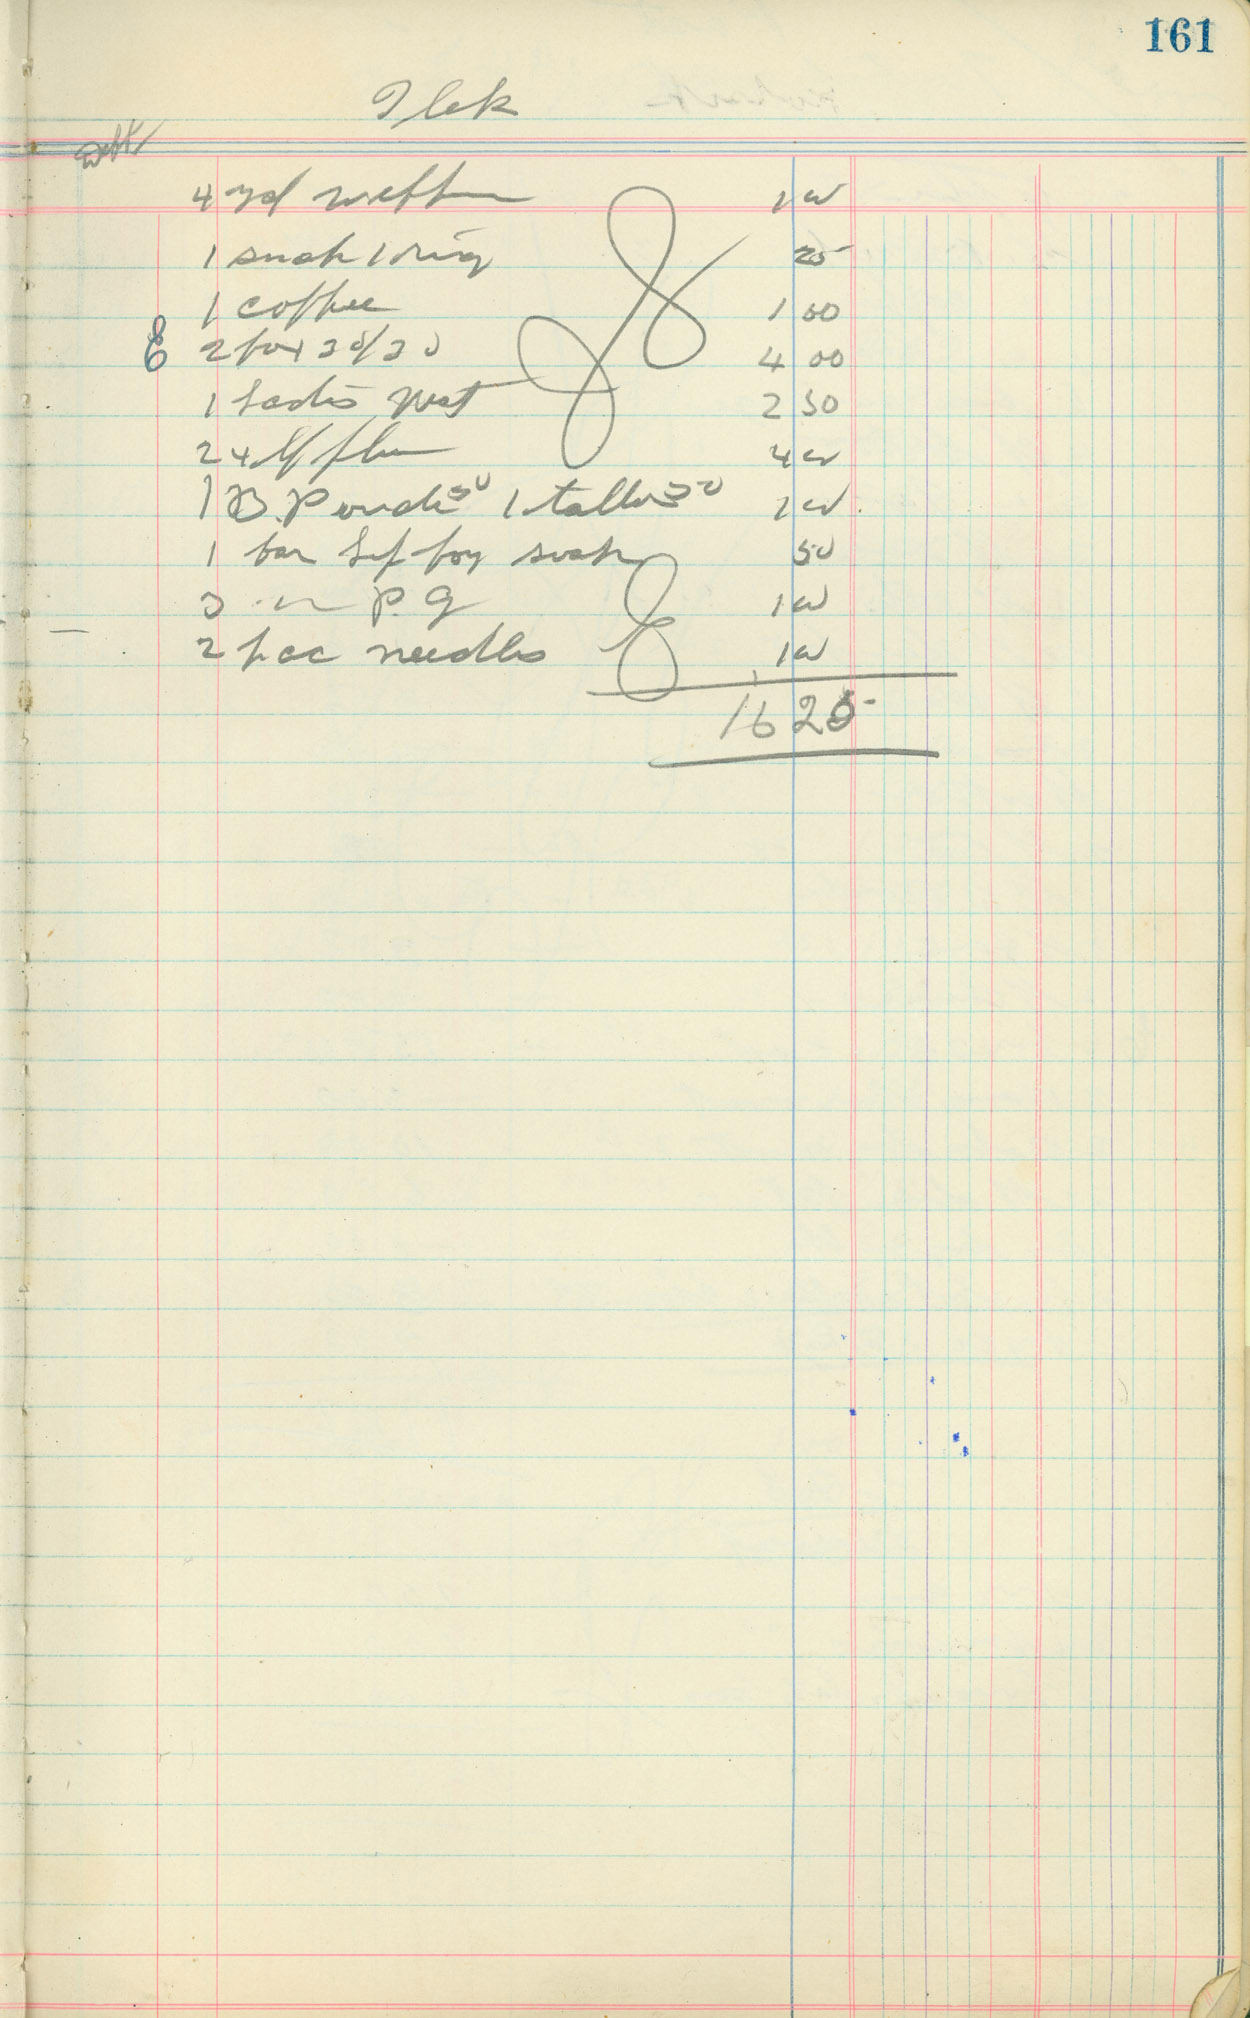 161
Ilek
4 yd 1 00
1 snak 1 ring 25
1 coffee 1 00
2 box 30/30 4 00
1 Ladis vest 2 50
24 lb flu 4 00
1 B. Powder 50 1 tallow 50 1 00
1 bar Lif boy soap 50
3 P. G 1 00
2 pac needles 1 00
16 25